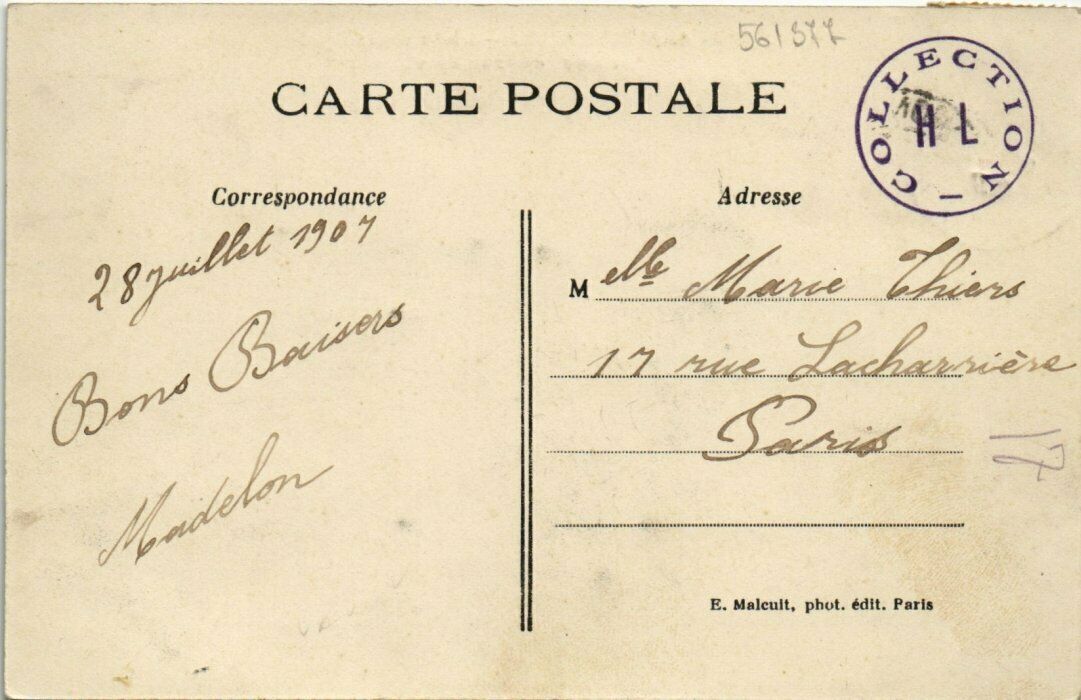 561377
CARTE POSTALE
COLLECTION
H L
Correspondance
28 juillet 1907
Bons Baisers
Madelon
Adresse
Melle Marie Thiers
17 rue Lacharrière
Paris
17
E. Malcuit, phot. édit. Paris